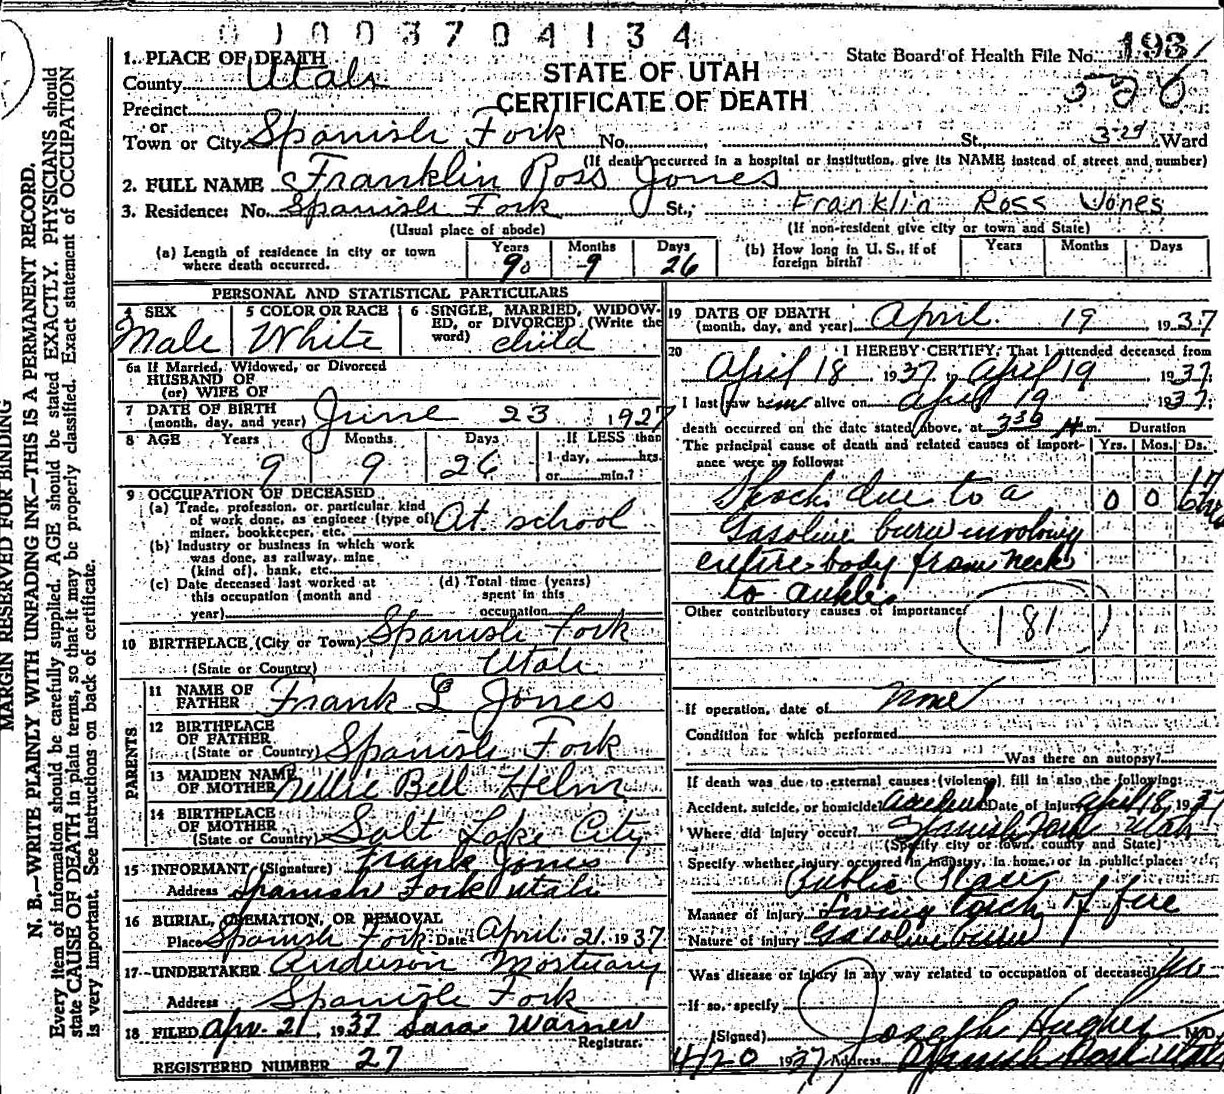 01003704134
1. PLACE OF DEATH
State Board of Health File No. 193
County Utah
STATE OF UTAH
Precinct
CERTIFICATE OF DEATH
or
Town or City Spanish Fork No. St., 3-24 Ward
(If death occurred in a hospital or institution, give its NAME instead of street and number)
2. FULL NAME Franklin Ross Jones
3. Residence: No. Spanish Fork St., Franklin Ross Jones
(Usual place of abode) (If non-resident give city or town and State)
(a) Length of residence in city or town where death occurred. Years 9 Months 9 Days 26
(b) How long in U. S., if of foreign birth? Years Months Days
PERSONAL AND STATISTICAL PARTICULARS
4 SEX Male
5 COLOR OR RACE White
6 SINGLE, MARRIED, WIDOWED, or DIVORCED (Write the word) child
6a If Married, Widowed, or Divorced
HUSBAND OF
(or) WIFE OF
7 DATE OF BIRTH
(month, day, and year) June 23 1927
8 AGE Years 9 Months 9 Days 26 If LESS than 1 day, hrs. or min.?
9 OCCUPATION OF DECEASED
(a) Trade, profession, or particular kind
of work done, as engineer (type of)
miner, bookkeeper, etc. At school
(b) Industry or business in which work
was done, as railway, mine
(kind of), bank, etc.
(c) Date deceased last worked at
this occupation (month and
year)
(d) Total time (years)
spent in this
occupation
10 BIRTHPLACE (City or Town) Spanish Fork
(State or Country) Utah
PARENTS
11 NAME OF FATHER Frank L Jones
12 BIRTHPLACE OF FATHER
(State or Country) Spanish Fork
13 MAIDEN NAME OF MOTHER Nellie Bell Helm
14 BIRTHPLACE OF MOTHER
(State or Country) Salt Lake City
15 INFORMANT (Signature) Frank Jones
Address Spanish Fork Utah
16 BURIAL, CREMATION, OR REMOVAL
Place Spanish Fork Date April 21 1937
17 UNDERTAKER Anderson Mortuary
Address Spanish Fork
18 FILED Apr. 21 1937 Sara Warner
Registrar.
REGISTERED NUMBER 27
19 DATE OF DEATH
(month, day, and year) April 19 1937
20 I HEREBY CERTIFY, That I attended deceased from
April 18 1937, April 19 1937
I last saw him alive on April 19 1937
death occurred on the date stated above, at 3 30 A m.
The principal cause of death and related causes of importance were as follows:
Duration
Yrs. Mos. Ds.
Shock due to a 0 0 17
Gasoline burn involving
entire body from neck
to ankles
Other contributory causes of importance
181
If operation, date of none
Condition for which performed
Was there an autopsy?
If death was due to external causes (violence) fill in also the following:
Accident, suicide, or homicide? Accident Date of injury April 18, 1937
Where did injury occur? Spanish Fork Utah
(Specify city or town, county and State)
Specify whether injury occurred in industry, in home, or in public place:
Public Place
Manner of injury Living torch of fire
Nature of injury Gasoline burn
Was disease or injury in any way related to occupation of deceased? No
If so, specify
(Signed) Joseph Hughes M.D.
4/20 1937 Address Spanish Fork Utah
MARGIN RESERVED FOR BINDING
N. B.—WRITE PLAINLY WITH UNFADING INK—THIS IS A PERMANENT RECORD.
Every item of information should be carefully supplied. AGE should be stated EXACTLY. PHYSICIANS should
state CAUSE OF DEATH in plain terms, so that it may be properly classified. Exact statement of OCCUPATION
is very important. See instructions on back of certificate.